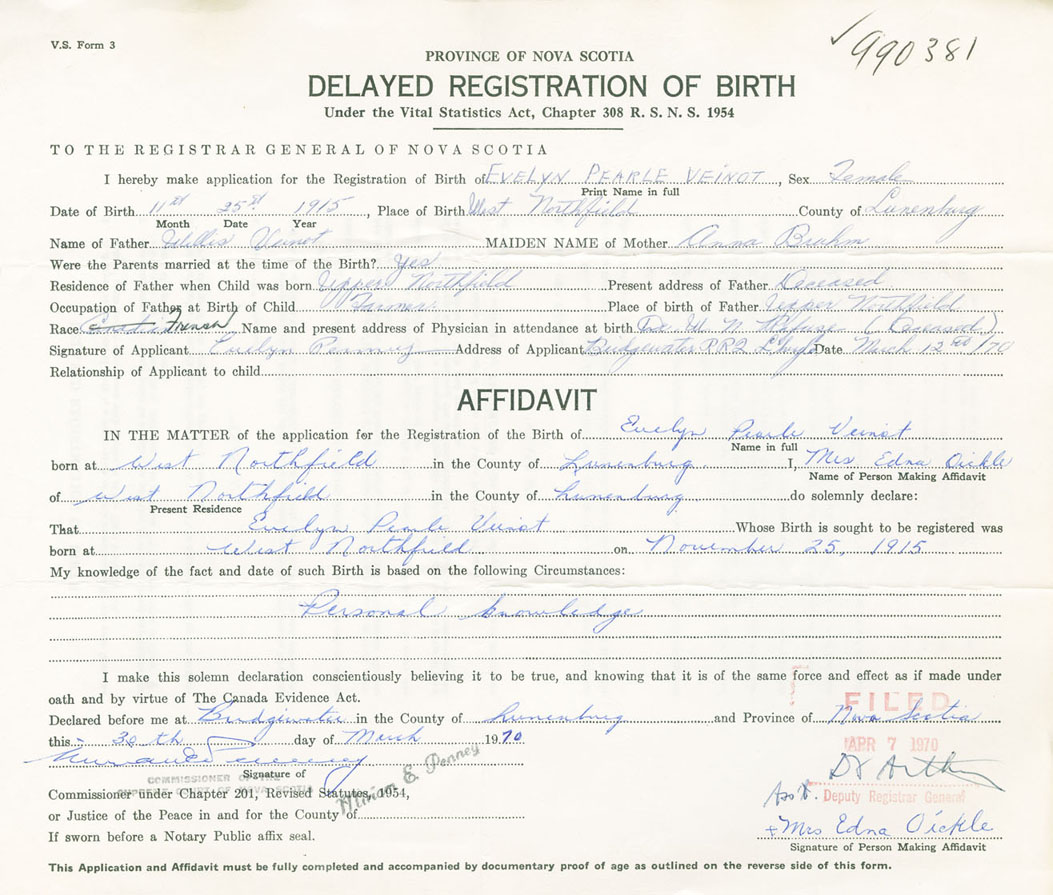 V.S. Form 3
990381
PROVINCE OF NOVA SCOTIA
DELAYED REGISTRATION OF BIRTH
Under the Vital Statistics Act, Chapter 308 R. S. N. S. 1954
TO THE REGISTRAR GENERAL OF NOVA SCOTIA
I hereby make application for the Registration of Birth of EVELYN PEARLE VEINOT, Sex Female
Print Name in full
Date of Birth 11st 25st 1915, Place of Birth West Northfield County of Lunenburg
Month Date Year
Name of Father Willis Veinot MAIDEN NAME of Mother Anna Bruhm
Were the Parents married at the time of the Birth? Yes
Residence of Father when Child was born Upper Northfield Present address of Father Deceased
Occupation of Father at Birth of Child Farmer Place of birth of Father Upper Northfield
Race French Name and present address of Physician in attendance at birth Dr. W. N. (Deceased)
Signature of Applicant Evelyn Penney Address of Applicant Bridgewater RR2 Date March 12 /70
Relationship of Applicant to child
AFFIDAVIT
IN THE MATTER of the application for the Registration of the Birth of Evelyn Pearle Veinot
Name in full
born at West Northfield in the County of Lunenburg I, Mrs Edna Oickle
Name of Person Making Affidavit
of West Northfield in the County of Lunenburg do solemnly declare:
Present Residence
That Evelyn Pearle Veinot Whose Birth is sought to be registered was
born at West Northfield on November 25, 1915
My knowledge of the fact and date of such Birth is based on the following Circumstances:
Personal knowledge
I make this solemn declaration conscientiously believing it to be true, and knowing that it is of the same force and effect as if made under
oath and by virtue of The Canada Evidence Act.
FILED
Declared before me at Bridgewater in the County of Lunenburg and Province of Nova Scotia
this 30th day of March 1970
APR 7 1970
Signature of
COMMISSIONER OF THE
SUPREME COURT OF NOVA SCOTIA
Miriam E. Penney
Commissioner under Chapter 201, Revised Statutes, 1954,
Asst. Deputy Registrar General
or Justice of the Peace in and for the County of
If sworn before a Notary Public affix seal.
+Mrs Edna Oickle
Signature of Person Making Affidavit
This Application and Affidavit must be fully completed and accompanied by documentary proof of age as outlined on the reverse side of this form.